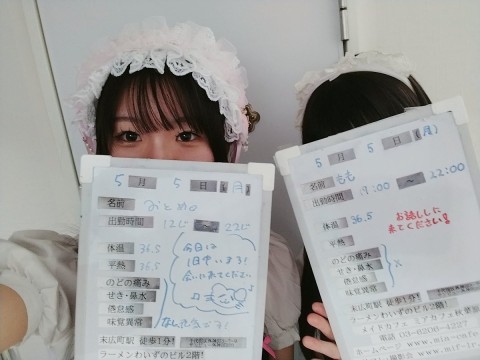 5 月 5 日 (月)
名前 おとめ
出勤時間 12じ ～ 22じ
体温 36.5
平熱 36.5
のどの痛み
せき・鼻水
倦怠感
味覚異常
今日は
1日中います!
会いに来てください
末広町駅 徒歩1分!
ラーメンわいずのビル2階!
5 月 5 日 (月)
名前 もも
出勤時間 17:00 ～ 22:00
体温 36.5
平熱
のどの痛み
せき・鼻水
倦怠感
味覚異常
お話ししに
来てください!
末広町駅 徒歩1分!
ラーメンわいずのビル2階!
メイドカフェ ミンカフェ秋葉
電話 03-6206-